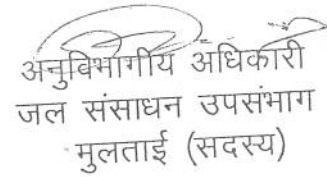 अनुविभागीय अधिकारी
जल संसाधन उपसंभाग
मुलताई (सदस्य)